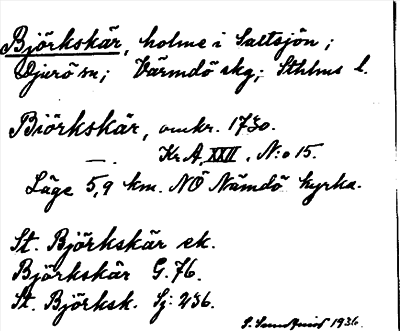 Björkskär, holme i Saltsjön;
Djurö sn; Värmdö skg; Sthlms l.
Biörkskär, omkr. 1730.
—. Kr A, XXII, N:o 15.
Läge 5,9 km. NÖ Nämdö kyrka.
St. Björkskär ek.
Björkskär G.76.
St. Björksk. Sj: 236.
1936.